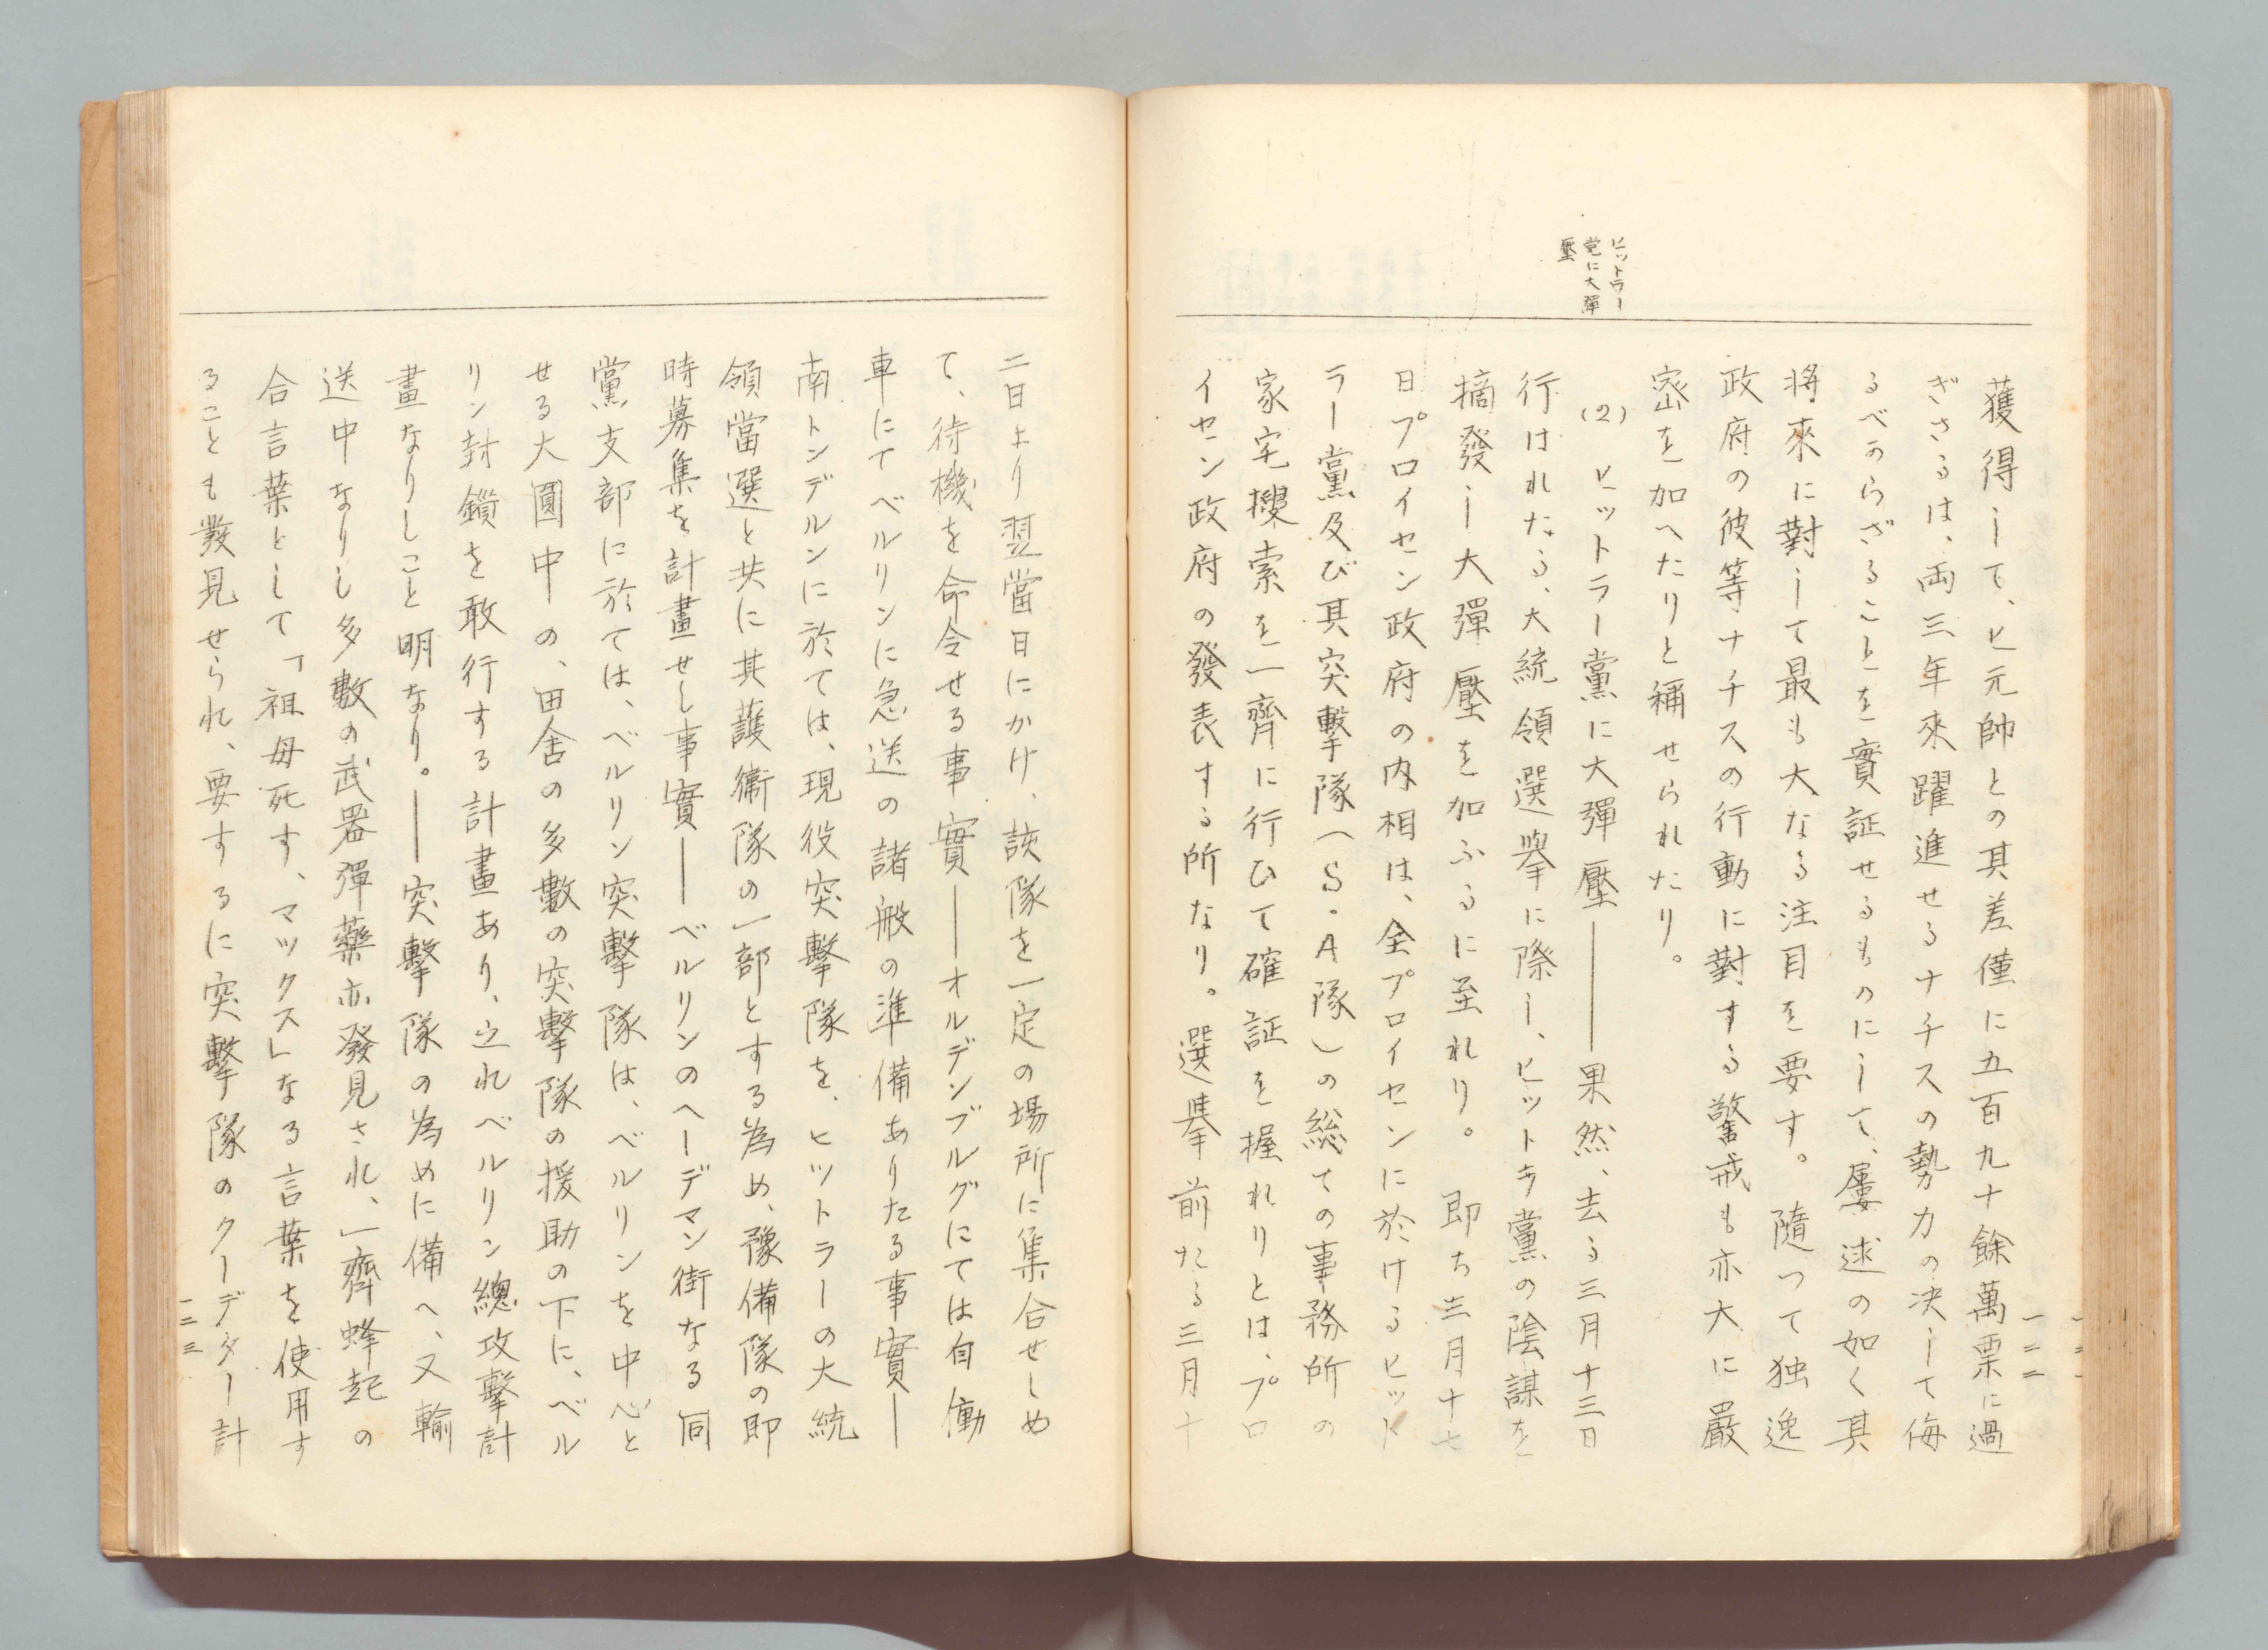 獲得して、ヒ元帥との其差僅に五百九十餘萬票に過
ぎざるは、両三年來躍進せるナチスの勢力の決して侮
るべからざることを實証せるものにして、屡述の如く其
将來に對して最も大なる注目を要す。隨つて独逸
政府の彼等ナチスの行動に對する警戒も亦大に嚴
密を加へたりと稱せられたり。
ヒットラー
党に大彈
壓
(2) ヒットラー黨に大彈壓——果然、去る三月十三日
行はれたる、大統領選擧に際し、ヒットラ黨の陰謀を
摘發し大彈壓を加ふるに至れり。即ち三月十七
日プロイセン政府の内相は、全プロイセンに於けるヒット
ラー黨及び其突撃隊(S・A隊)の総ての事務所の
家宅搜索を一齊に行ひて確証を握れりとは、プロ
イセン政府の發表する所なり。選擧前たる三月十
一二二
二日より翌當日にかけ、該隊を一定の場所に集合せしめ
て、待機を命令せる事實——オルデンブルグにては自働
車にてベルリンに急送の諸般の準備ありたる事實—
南トンデルンに於ては、現役突撃隊を、ヒットラーの大統
領當選と共に其護衛隊の一部とする為め、豫備隊の即
時募集を計畫せし事實——ベルリンのヘーデマン街なる同
黨支部に於ては、ベルリン突撃隊は、ベルリンを中心と
せる大圓中の、田舎の多數の突撃隊の援助の下に、ベル
リン封鎖を敢行する計畫あり、之れベルリン總攻撃計
畫なりしこと明なり。——突撃隊の為めに備へ、又輸
送中なりし多數の武器彈藥亦發見され、一齊蜂起の
合言葉として「祖母死す、マックス」なる言葉を使用す
ることも發見せられ、要するに突撃隊のクーデター計
一二三